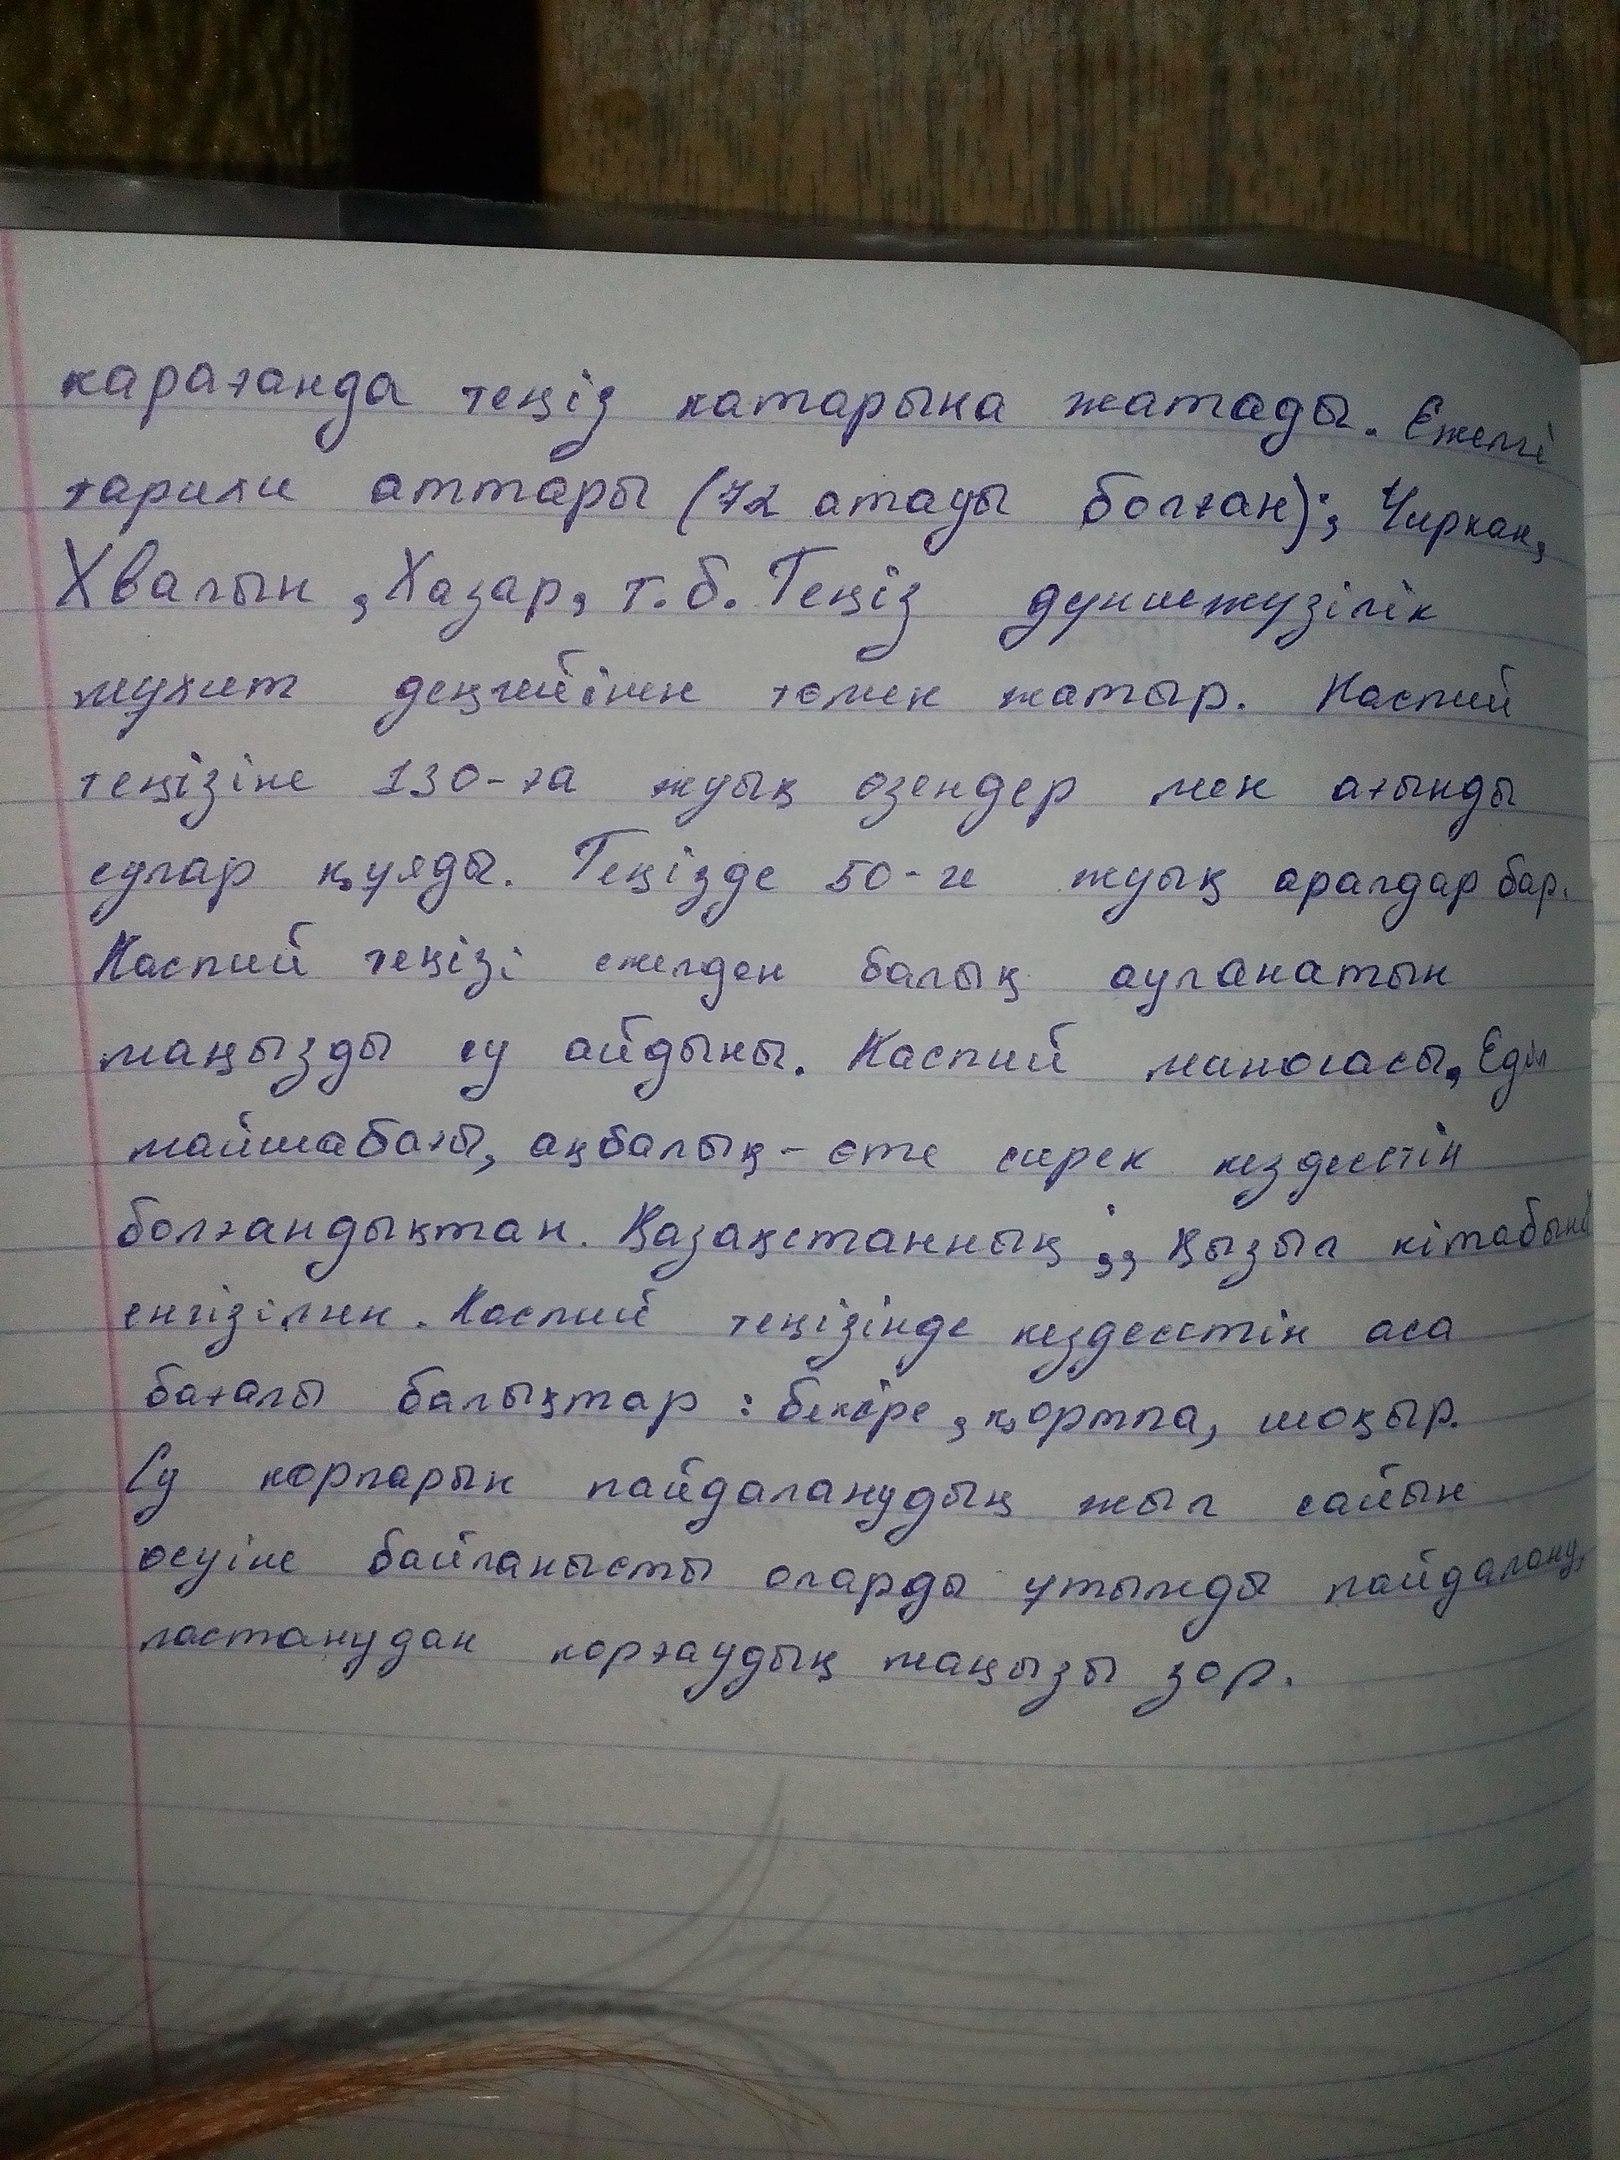 карағанда теңіз катарына жатады. Ежелгі
тарихи аттары (72 атауы болған): Чиркан,
Хвалын, Хазар, т.б. Теңіз дүниежүзілік
мұхит деңгейінен төмен жатыр. Каспий
теңізіне 130-ға жуық өзендер мен ағынды
сулар құяды. Теңізде 50-ге жуық аралдар бар.
Каспий теңізі ежелден балық ауланатын
маңызды су айдыны. Каспий миногасы, Еділ
майшабағы, ақбалық - өте сирек кездестін
болғандықтан. Қазақстанның ,, Қызыл кітабына
енгізілген. Каспий теңізінде кездесетін аса
бағалы балықтар: бекіре, қортпа, шоқыр.
Су корларын пайдаланудың жыл сайын
өсуіне байланысты оларды ұтымды пайдалану,
ластанудан корғаудың маңызы зор.